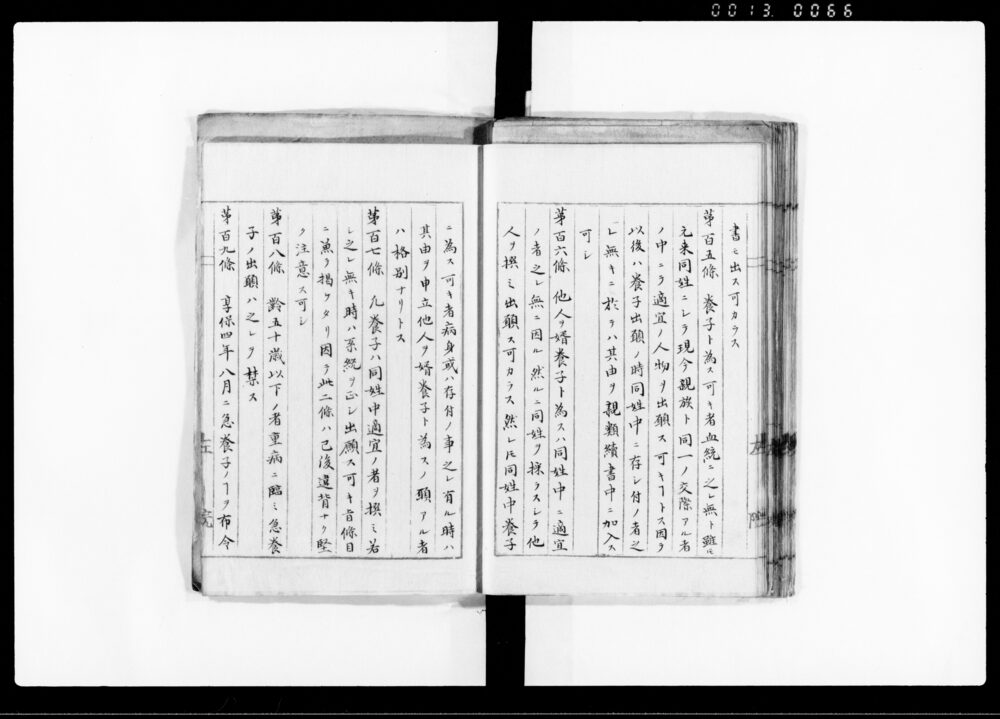 0013 0066
書モ出ス可カラス
第百五條 養子ト為ス可キ者血統ニ之レ無ト雖𪜈
元来同姓ニシテ現今親族ト同一ノ交際アル者
ノ中ニテ適宜ノ人物ヲ出願ス可キヿトス因テ
以後ハ養子出願ノ時同姓中ニ存シ付ノ者之
レ無キニ於テハ其由ヲ親類續書中ニ加入ス
可シ
第百六條 他人ヲ婿養子ト為スハ同姓中ニ適宜
ノ者之レ無ニ因ル然ルニ同姓ヲ採ラスシテ他
人ヲ撰ミ出願ス可カラス然レ𪜈同姓中養子
ニ為ス可キ者病身或ハ存付ノ事之レ有ル時ハ
其由ヲ申立他人ヲ婿養子ト為スノ願アル者
ハ格別ナリトス
第百七條 凡養子ハ同姓中適宜ノ者ヲ撰ミ若
シ之レ無キ時ハ系統ヲ正シ出願ス可キ旨條目
ニ兼テ掲ケタリ因テ此二條ハ已後違背ナク堅
ク注意ス可シ
第百八條 齡五十歳以下ノ者重病ニ臨ミ急養
子ノ出願ハ之レヲ禁ス
第百九條 享保四年八月ニ急養子ノヿヲ布令
左院